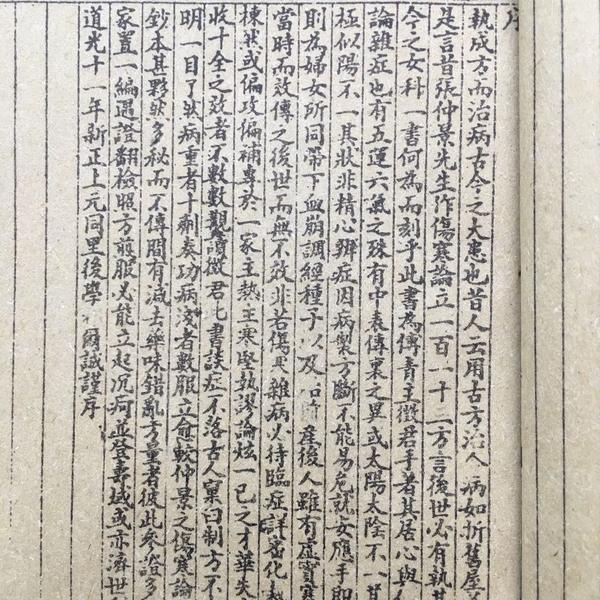 序
執成方而治病古今之大患也昔人云用古方治今病如折舊屋
是言昔張仲景先生作傷寒論立一百一十三方言後世必有執其
今之女科一書何為而刻乎此書為傅青主徵君手著其居心與
論雜症也有五運六氣之殊有中表傳裏之異或太陽太陰不一其
極似陽不一其狀非精心辨症因病製方斷不能易危就安應手即
則為婦女所同帶下血崩調經種子以及 前產後人雖有虛實寒
當時而效傳之後世而無不效非若傷寒雜病必待臨症詳審化
棟然或偏攻偏補專於一家主熱主寒堅執謬論炫一己之才華失
收十全之效者不數數覯讀徵君此書談症不落古人窠臼制方不
明一目了然病重者十劑奏功病淺者數服立愈較仲景之傷寒論
鈔本甚夥然多秘而不傳間有減去藥味錯亂方量者彼此參證多
家置一編遇證翻檢照方煎服必能立起沉疴並登壽域或亦濟世
道光十一年新正上元同里後學 爾誠謹序